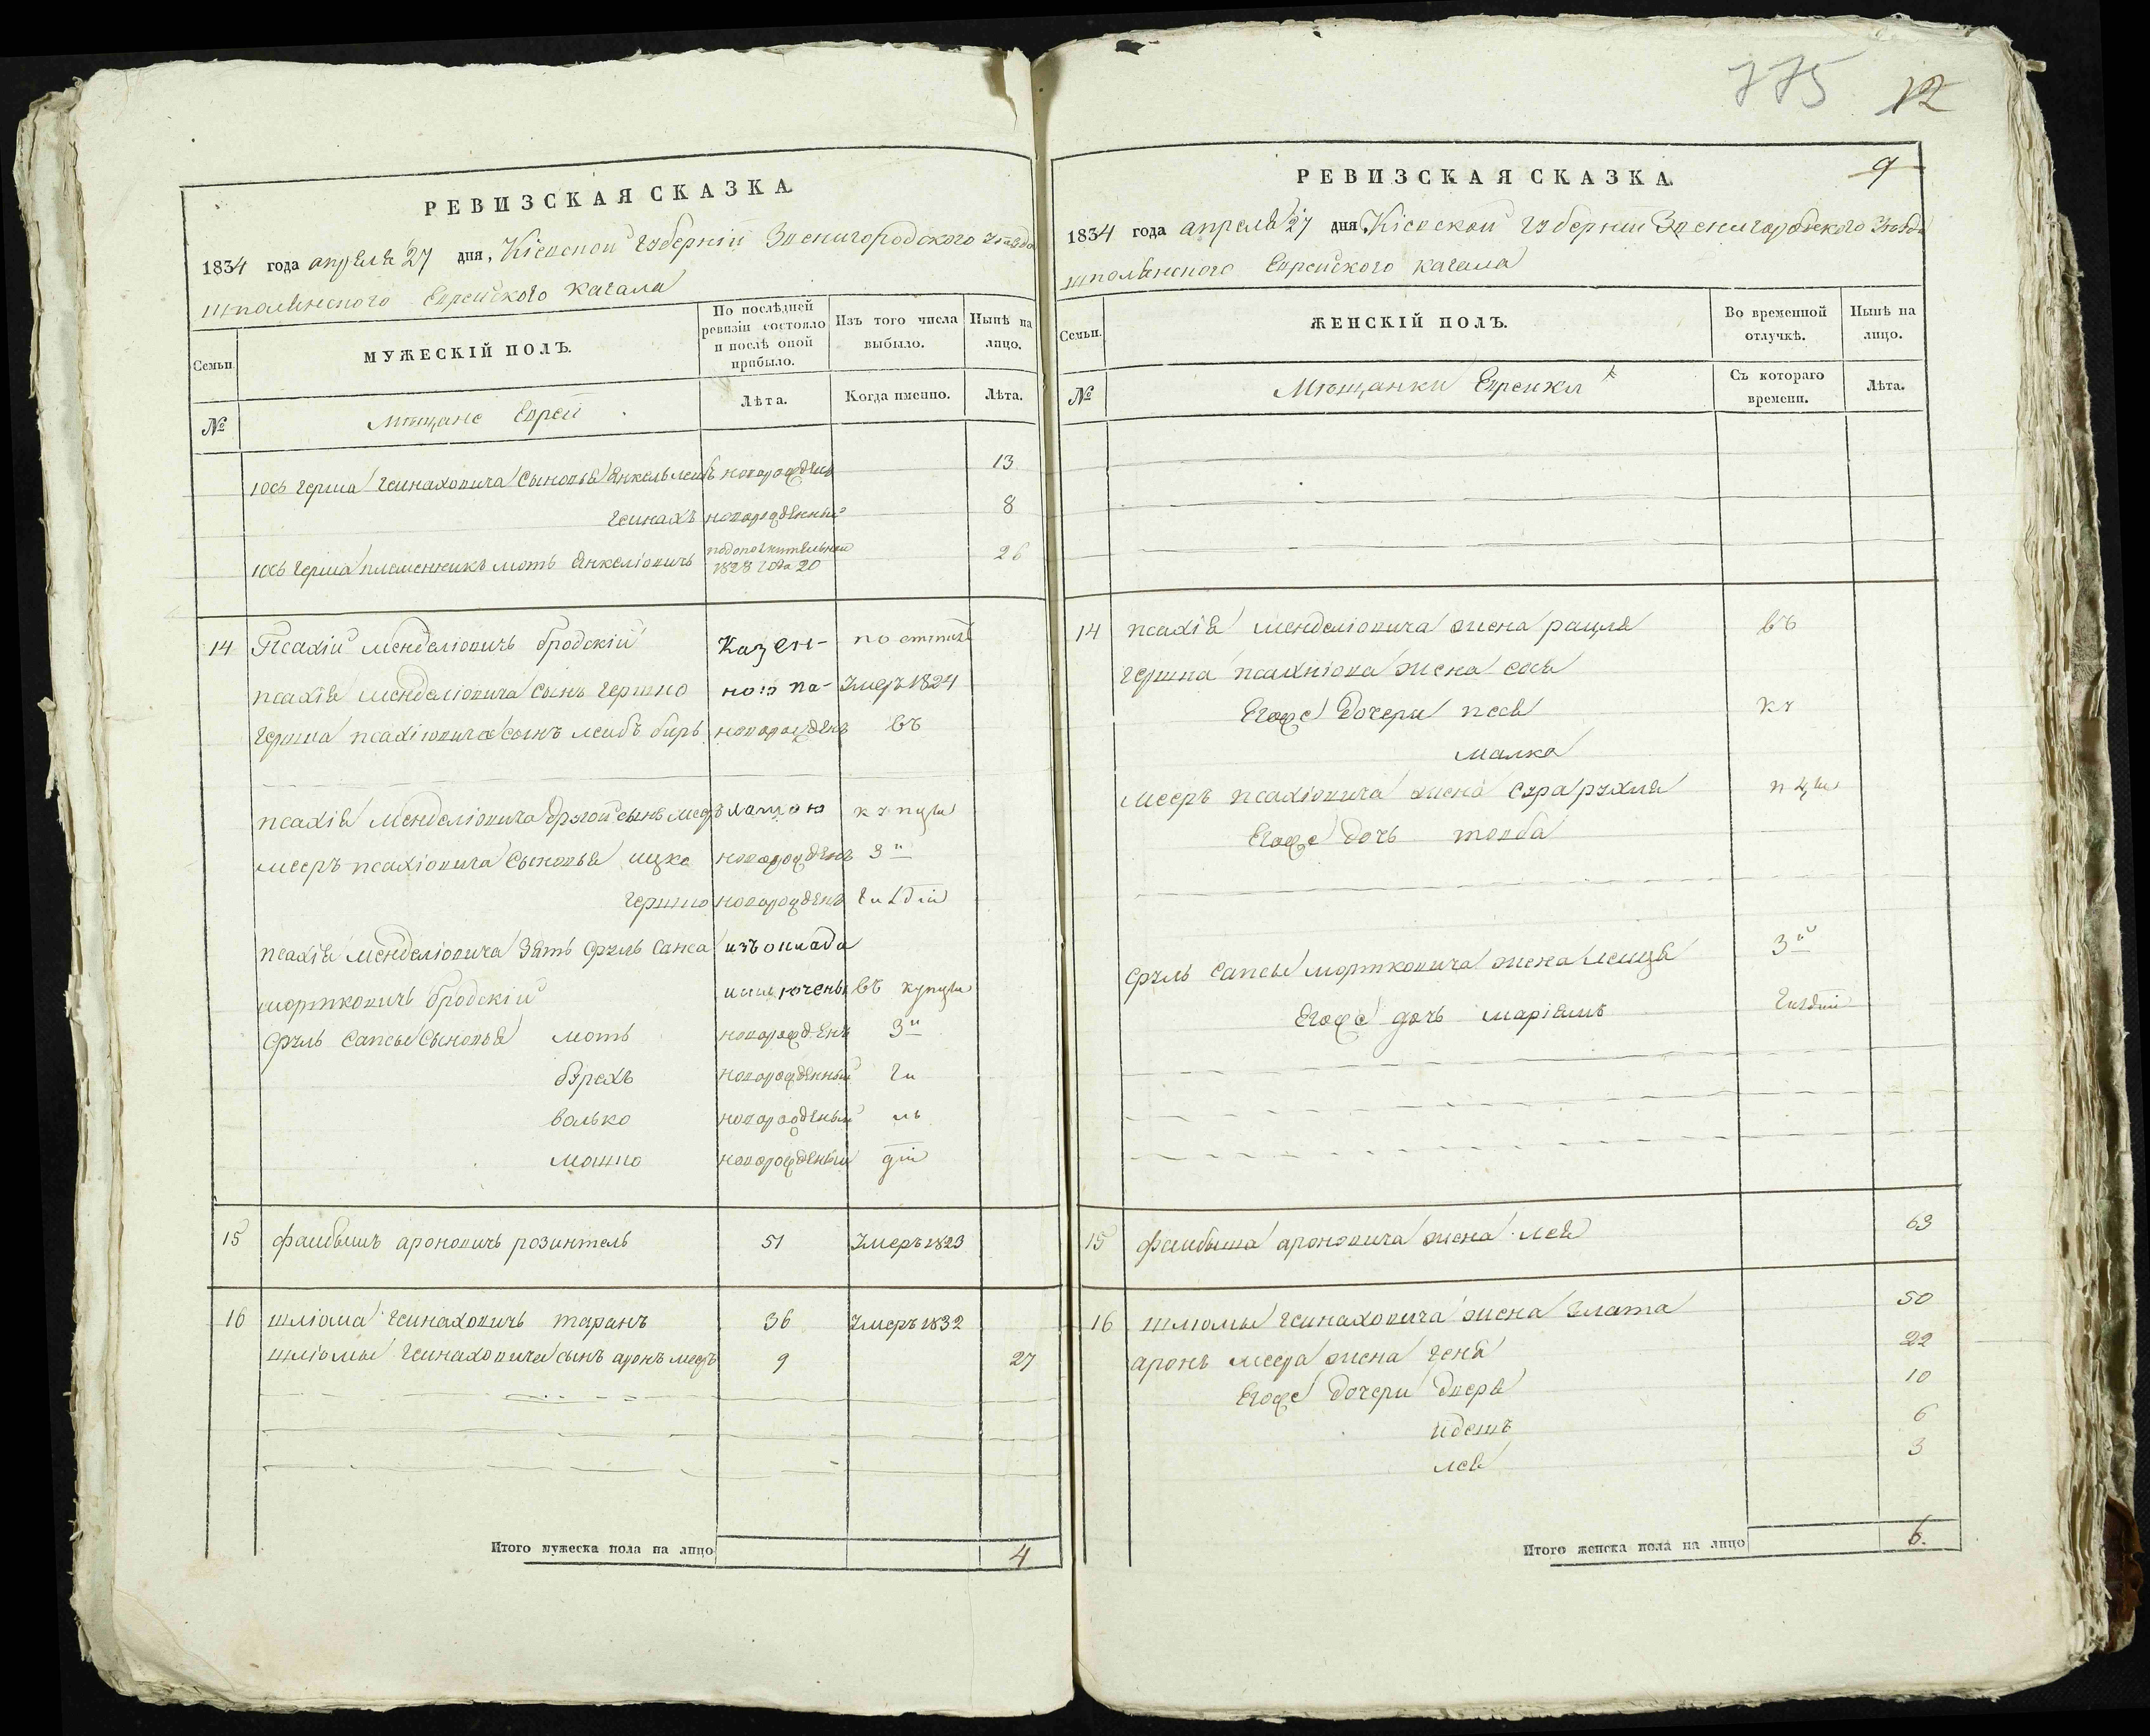 РЕВИЗСКАЯ СКАЗКА.
1834 года апреля 27 дня, Кіевской губерніи Звенигородского уѣзда
шполянского Еврейского кагала
Семьи.
МУЖЕСКІЙ ПОЛЪ.
По послѣдней ревизіи состояло и послѣ оной прибыло.
Изъ того числа выбыло.
Нынѣ на лицо.
№
мѣщане Евреи
Лѣта.
Когда именно.
Лѣта.
Іось герша геинаховича сыновья Янкель леибъ новорожденъ 13
геинахъ новорожденный 8
Іось герша племенникъ моть Янкеліовичъ 1828 года 20 26
14 Псахій мендаліовичъ бродскій Казен-
псахія мендаліовича сынъ гершко ной па- Умеръ 1824
герша псахіовича сынъ леибъ беръ новорожденъ въ
псахія мендаліовича другой сынъ мееръ латою купцы
мееръ псахіовича сыновья ицко новорожденъ 3й
гершко новорожденъ гилдіи
псахія мендаліовича зять сруль сапса изъ оклада
мортковичъ бродскій исключены въ купцы
сруль сапсы сыновья моть новорожденъ 3й
борехъ новорожденный ги
волько новорожденый ль
мошко новорожденый діи
15 фаибышъ ароновичъ розинтель 51 Умеръ 1823
16 шліома геинаховичъ таранъ 36 Умеръ 1832
шліомы геинаховича сынъ аронъ мееръ 9 27
Итого мужеска пола на лицо 4
775 12
9
РЕВИЗСКАЯ СКАЗКА.
1834 года апреля 27 дня Кіевской губерніи Звенигородского Уѣзда
шполянского Еврейского кагала
Семьи.
ЖЕНСКІЙ ПОЛЪ.
Во временной отлучкѣ.
Нынѣ на лицо.
№
Мѣщанки Еврейки
Съ котораго времени.
Лѣта.
14 псахія мендаліовича жена рацля въ
герша псахіова жена сося
Егоже дочери песя ку
малка
мееръ псахіовича жена сура рухля пцы
Егоже дочь товба
сруль сапсы мортковича жена 3й
Егоже дочь маріямъ гилдіи
15 фаибыша ароновича жена лея 63
16 шліомы геинаховича жена злата 50
аронъ меера жена геня 22
Егоже дочери двера 10
идесъ 6
лея 3
Итого женска пола на лицо 6.